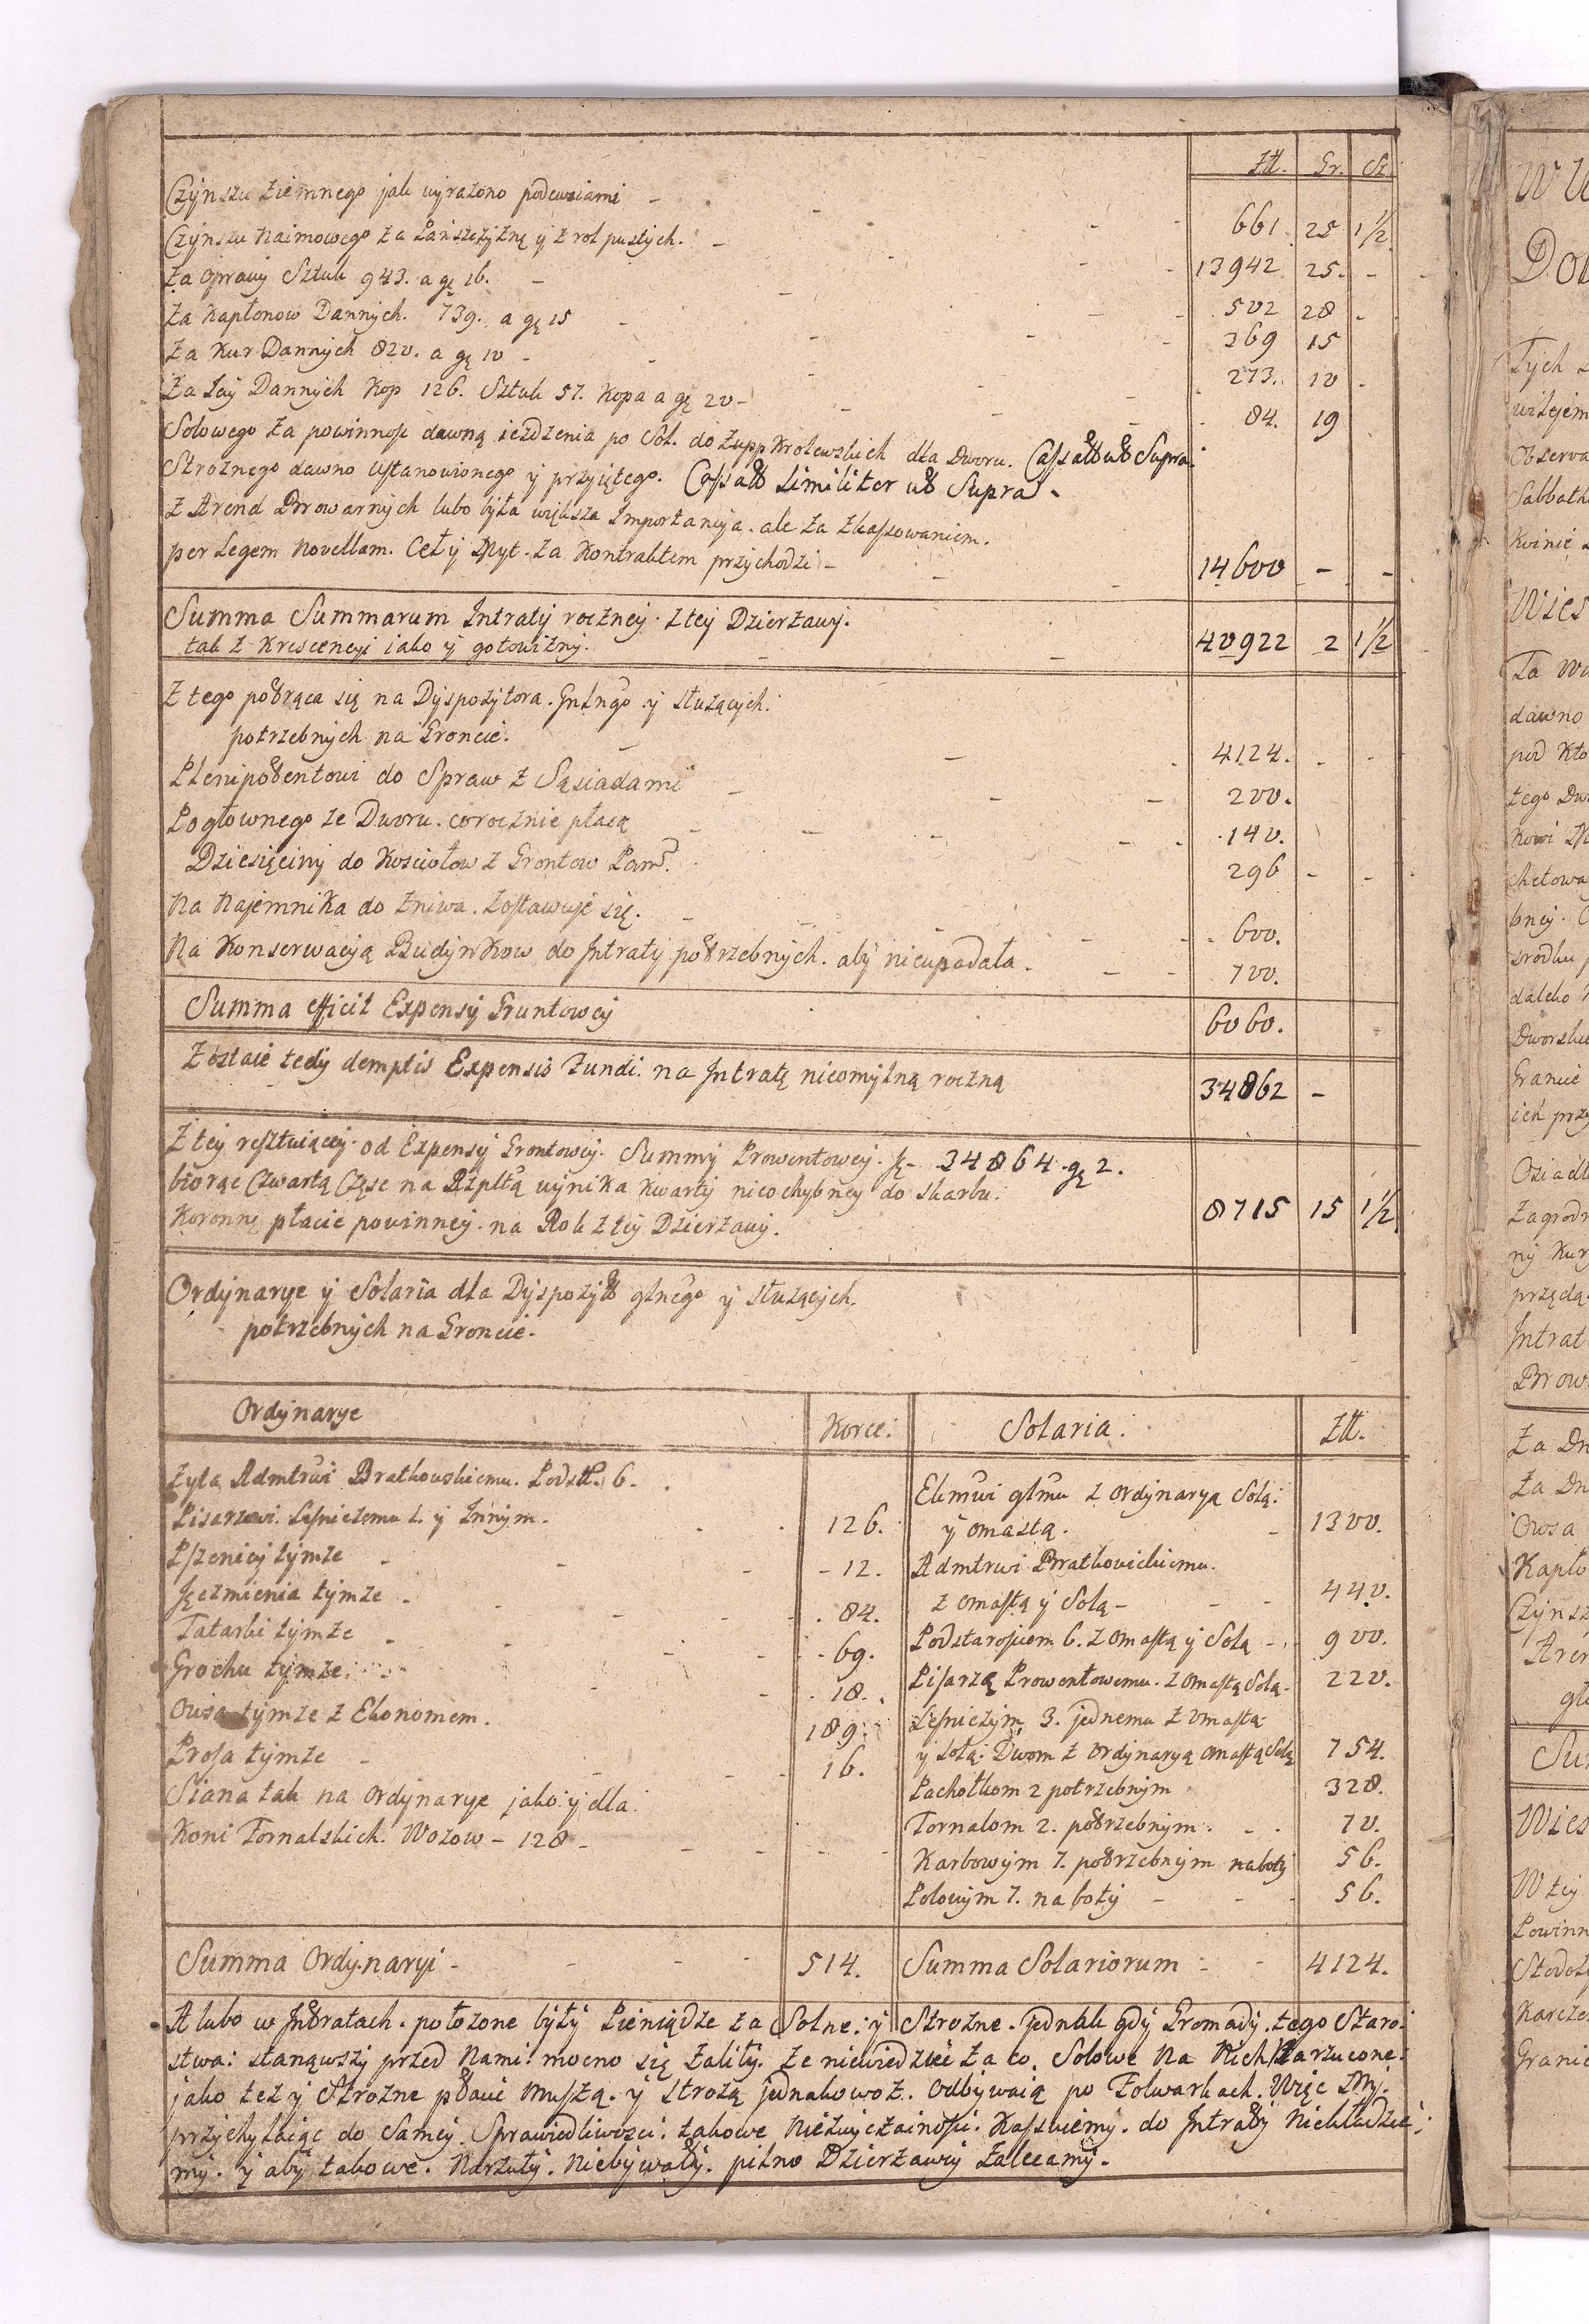 Złł. Gr. Sz
Czynszu Ziemnego jak wyrażono podewsiami - 661 25 1½
Czynszu Naimowego za Pańszczyznę y z rol pustych. - 13942 25. -
Za Oprawy Sztuk 943. a gr 16. - 502 28 .
Za Kapłonow Dannych. 739. a gr 15 - 369 15
Za Kur Dannych 820. a gr 10 - 273. 10 .
Za Jay Dannych Kop 126. Sztuk 57. Kopa a gr 20 - 84. 19
Solowego za powinnosc dawną ieżdżenia po Sol. do Zupp Krolewskich dla Dworu. Cassatt ut Supra.
Stroznego dawno Ustanowionego y przyiętego. Cassatt Similiter ut Supra.
Z Arend Browarnych lubo była większa Importancya. ale za zkassowaniem.
per Legem Novellam. Cetÿ Myt. za Kontraktem przychodzi - 14600 - -
Summa Summarum Intraty roczney z tey Dzierzawy.
tak z Krescencyi iako y gotowizny. 40922 2 1½
Z tego potrąca się na Dyspozytora. Gnlngo y służących.
potrzebnych na Groncie. 4124. . -
Plenipotentowi do Spraw z Sąsiadami - 200.
Pogłownego ze Dworu. corocznie płacą - 140.
Dziesięciny do Kosciołow z Grontow Pam. 296 - -
Na Najemnika do żniwa. zostawuje się. - 600.
Na Konserwacyą Budynkow do Intraty potrzebnych. aby nieupadała. - - 700.
Summa efficit Expensy Gruntowey 6060.
Zostaie tedy demptis Expensis Fundi. na Intratę nieomylną roczną 34862 -
Z tey resztuiącey. od Expensy Grontowey. Summy Prowentowey. fł - 34864 gr 2.
biorąc Czwartą Częsc na Rzpltą wynika Kwarty nieochybney do skarbu.
Koronne płacic powinney. na Rok z tey Dzierzawy. 8715 15 1½
Ordynarye y Solaria dla Dyspozytt glnego y służących.
potrzebnych na Groncie.
Ordynarye Korce. Solaria. Złł.
Zyta Admtrwi Bratkowskiemu. Podstt. 6.
Pisarzowi. Lesniczemu 1. y Innym. - 126.
Pszenicy tymże - - 12.
Jęczmienia tymże . 84.
Tatarki tymże . 69.
Grochu tymże. 18.
Owsa tymże z Ekonomem. 189.
Prosa tymże - 16.
Siana tak na Ordynarye jako y dla.
Koni Fornalskich. Wozow - 128 -
Ekmwi glmu z Ordynaryą Solą.
y omastą. - 1300.
Admtrwi Bratkowickiemu.
z omastą y Solą - 440.
Podstarosciom 6. z omastą y Solą - 900.
Pisarzą Prowentowemu. z omastą Solą - 220.
Lesniczym 3. jednemu z omastą
y Solą. Dwom z Ordynaryą omastą Solą 754.
Pachołkom 2 potrzebnym 328.
Fornalom 2. potrzebnym. - . 70.
Karbowym 7. potrzebnym na boty 56.
Polowym 7. na boty - 56.
Summa Ordynaryi - 514. Summa Solariorum - 4124.
A lubo w Intratach. położone były Pieniądze za Solne. y Strozne. jednak gdy Gromady. tego Staro:
stwa: stanąwszy przed Nami. mocno się żaliły. że niewiedzieć za co. Solowe na Nich Zarzucone.
jako też y Strozne płacić muszą. y strozą jednakowoż. odbywaią po Folwarkach. Więc My.
przychylaiąc do Samey. Sprawiedliwosci. takowe Niezwyczainosci. Kassuiemy. do Intraty Niekładzie:
my. y aby takowe. Narzuty. Niebywały. pilno Dzierzawy zalecamy.